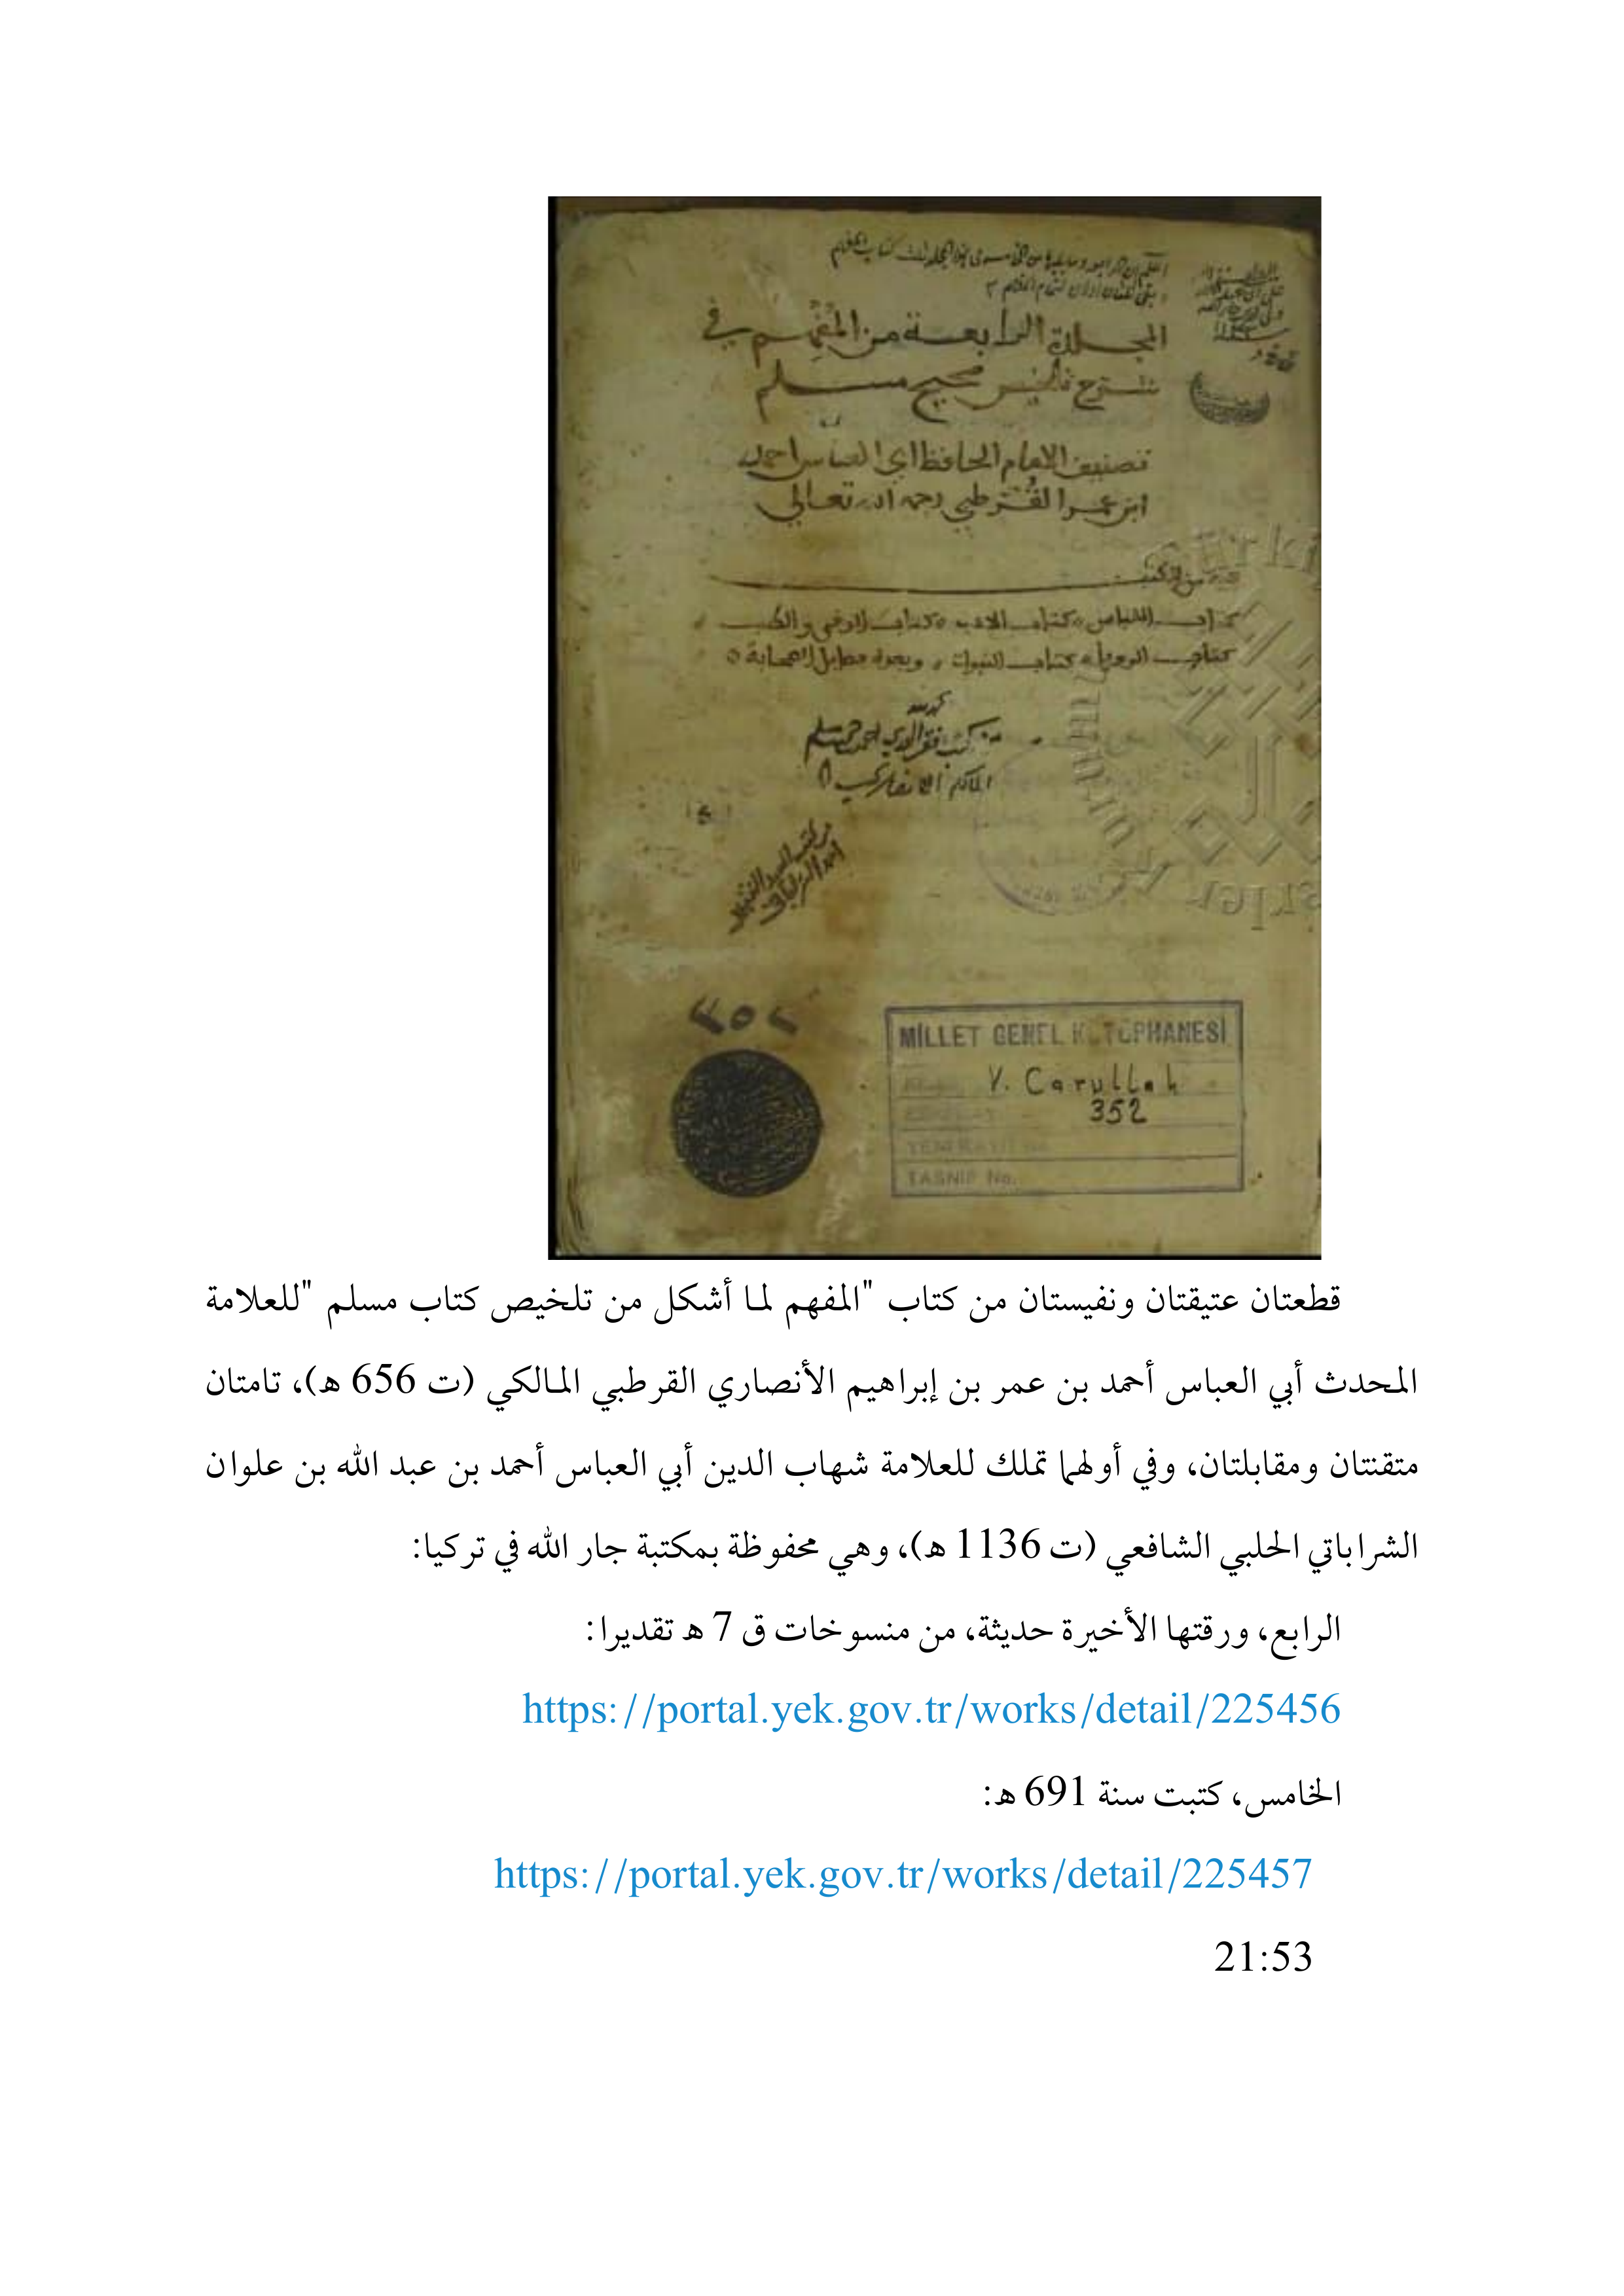 المجلدة الرابعة من المُفْهِم في
شرح تلخيص صحيح مسلم
تصنيف الامام الحافظ ابي العباس احمد
ابن عمر القُرطبي رحمه الله تعالى
كتاب اللباس كتاب الادب كتاب الرقى والطب
كتاب الرويا كتاب النبوات وبعده فضايل الصحابة
الانصاري
٣٥٢
MİLLET GENEL KÜTÜPHANESİ
V. Carullah
352
TASNIF No.
قطعتان عتيقتان ونفيستان من كتاب "المفهم لما أشكل من تلخيص كتاب مسلم "للعلامة
المحدث أبي العباس أحمد بن عمر بن إبراهيم الأنصاري القرطبي المالكي (ت 656 ه)، تامتان
متقنتان ومقابلتان، وفي أولهما تملك للعلامة شهاب الدين أبي العباس أحمد بن عبد الله بن علوان
الشراباتي الحلبي الشافعي (ت 1136 ه)، وهي محفوظة بمكتبة جار الله في تركيا:
الرابع، ورقتها الأخيرة حديثة، من منسوخات ق 7 ه تقديرا:
https://portal.yek.gov.tr/works/detail/225456
الخامس، كتبت سنة 691 ه:
https://portal.yek.gov.tr/works/detail/225457
21:53